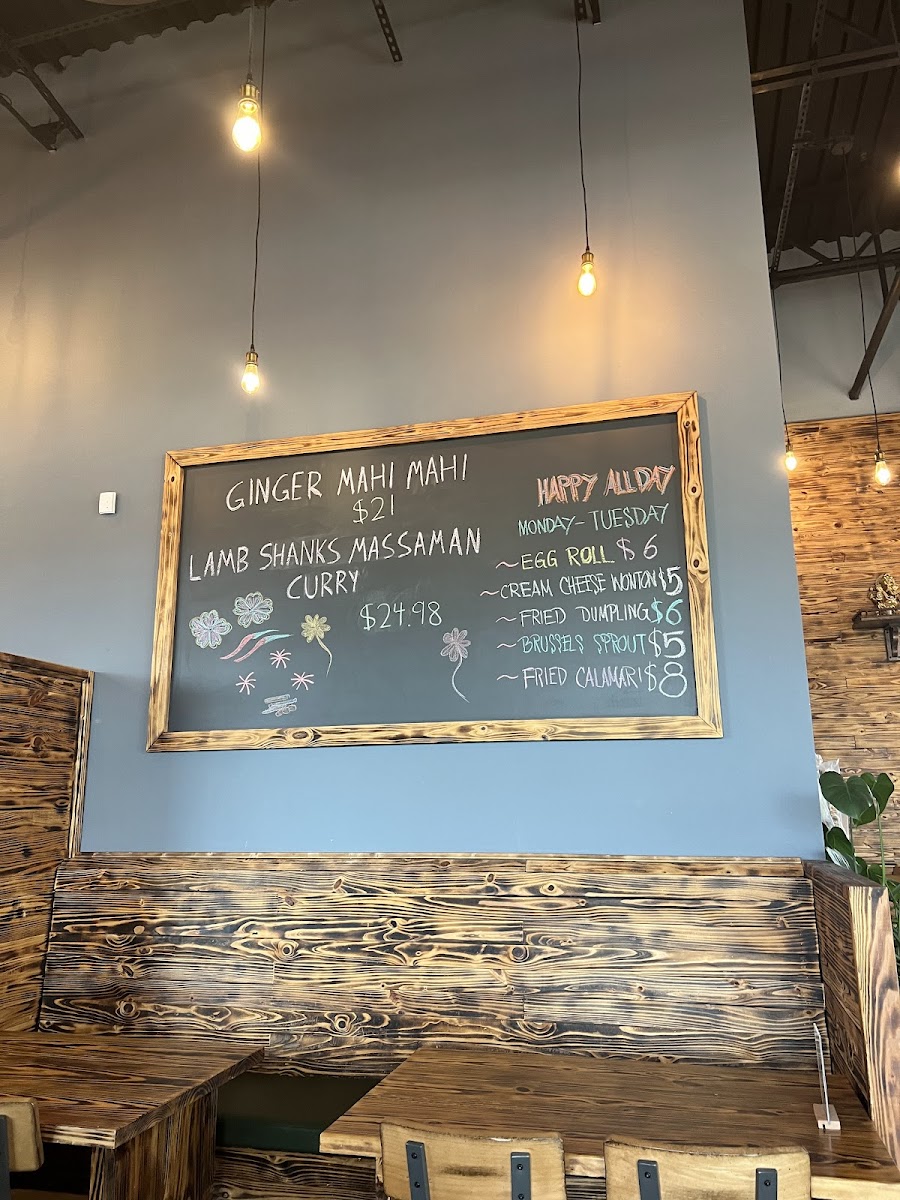 GINGER MAHI MAHI
$21
LAMB SHANKS MASSAMAN
CURRY
$24.98
HAPPY ALL DAY
MONDAY-TUESDAY
~EGG ROLL $6
~CREAM CHEESE WONTON $5
~FRIED DUMPLING $6
~BRUSSELS SPROUT $5
~FRIED CALAMARI $8